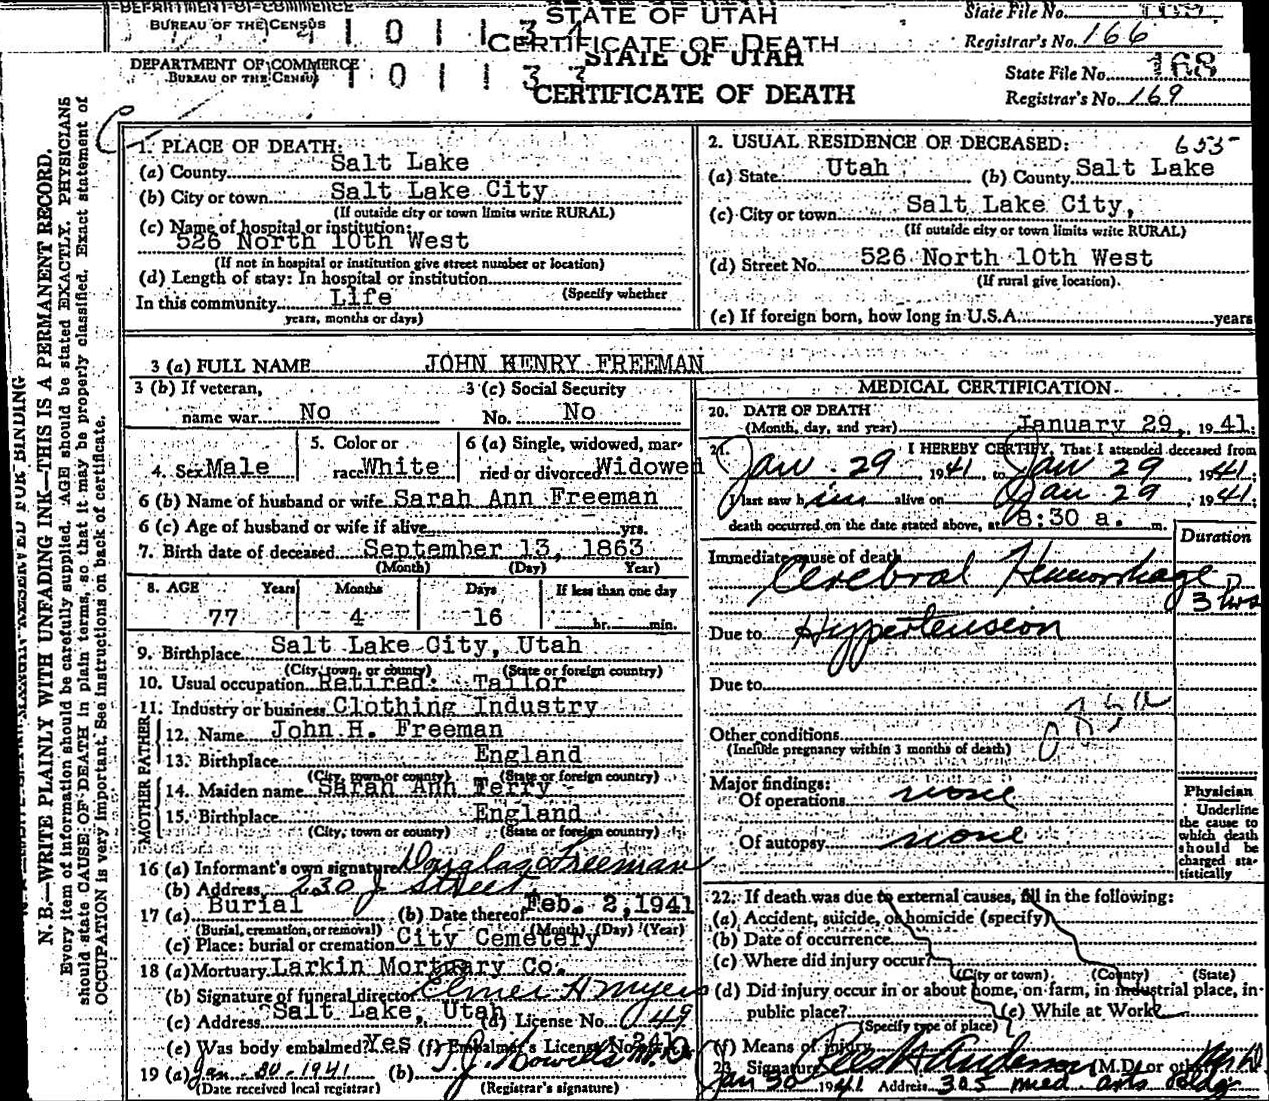 DEPARTMENT OF COMMERCE
BUREAU OF THE CENSUS
STATE OF UTAH
CERTIFICATE OF DEATH
State File No.
Registrar's No. 166
DEPARTMENT OF COMMERCE
BUREAU OF THE CENSUS
STATE OF UTAH
CERTIFICATE OF DEATH
State File No. 168
Registrar's No. 169
N. B.—WRITE PLAINLY WITH UNFADING INK—THIS IS A PERMANENT RECORD.
Every item of information should be carefully supplied. AGE should be stated EXACTLY. PHYSICIANS
should state CAUSE OF DEATH in plain terms, so that it may be properly classified. Exact statement of
OCCUPATION is very important. See instructions on back of certificate.
1. PLACE OF DEATH:
(a) County Salt Lake
(b) City or town Salt Lake City
(If outside city or town limits write RURAL)
(c) Name of hospital or institution:
526 North 10th West
(If not in hospital or institution give street number or location)
(d) Length of stay: In hospital or institution
(Specify whether
In this community Life
years, months or days)
2. USUAL RESIDENCE OF DECEASED: 655
(a) State Utah (b) County Salt Lake
(c) City or town Salt Lake City,
(If outside city or town limits write RURAL)
(d) Street No. 526 North 10th West
(If rural give location)
(e) If foreign born, how long in U.S.A. years
3 (a) FULL NAME JOHN HENRY FREEMAN
3 (b) If veteran,
name war No
3 (c) Social Security
No. No
4. Sex Male
5. Color or
race White
6 (a) Single, widowed, mar-
ried or divorced Widowed
6 (b) Name of husband or wife Sarah Ann Freeman
6 (c) Age of husband or wife if alive yrs.
7. Birth date of deceased September 13, 1863
(Month) (Day) Year)
8. AGE Years Months Days If less than one day
77 4 16 hr. min.
9. Birthplace Salt Lake City, Utah
(City, town, or county) (State or foreign country)
10. Usual occupation Retired: Tailor
11. Industry or business Clothing Industry
FATHER
12. Name John H. Freeman
13. Birthplace England
(City, town or county) (State or foreign country)
MOTHER
14. Maiden name Sarah Ann Terry
15. Birthplace England
(City, town or county) (State or foreign country)
16 (a) Informant's own signature Douglas Freeman
(b) Address 230 J Street
17 (a) Burial (b) Date thereof Feb. 2, 1941
(Burial, cremation, or removal) (Month) (Day) (Year)
(c) Place: burial or cremation City Cemetery
18 (a) Mortuary Larkin Mortuary Co.
(b) Signature of funeral director Elmer A Myers
(c) Address Salt Lake, Utah (d) License No. 49
(e) Was body embalmed? Yes (f) Embalmer's License No.
19 (a) Jan. 30-1941 (b)
(Date received local registrar) (Registrar's signature)
MEDICAL CERTIFICATION
20. DATE OF DEATH
(Month, day, and year) January 29, 1941.
21. I HEREBY CERTIFY, That I attended deceased from
Jan. 29 1941, to Jan 29, 1941.
I last saw him alive on Jan 29, 1941.
death occurred on the date stated above, at 8:30 a. m.
Duration
Immediate cause of death
Cerebral Hemorrhage
3 hrs
Due to Hypertension
Due to
Other conditions
(Include pregnancy within 3 months of death)
Major findings:
Of operations none
Of autopsy none
Physician
Underline
the cause to
which death
should be
charged sta-
tistically
22. If death was due to external causes, fill in the following:
(a) Accident, suicide, or homicide (specify)
(b) Date of occurrence
(c) Where did injury occur?
(City or town) (County) (State)
(d) Did injury occur in or about home, on farm, in industrial place, in
public place? (e) While at Work
(Specify type of place)
(f) Means of injury
23. Signature Anderson (M.D. or other)
Jan 30 1941 Address 305 Med. Arts Bldg